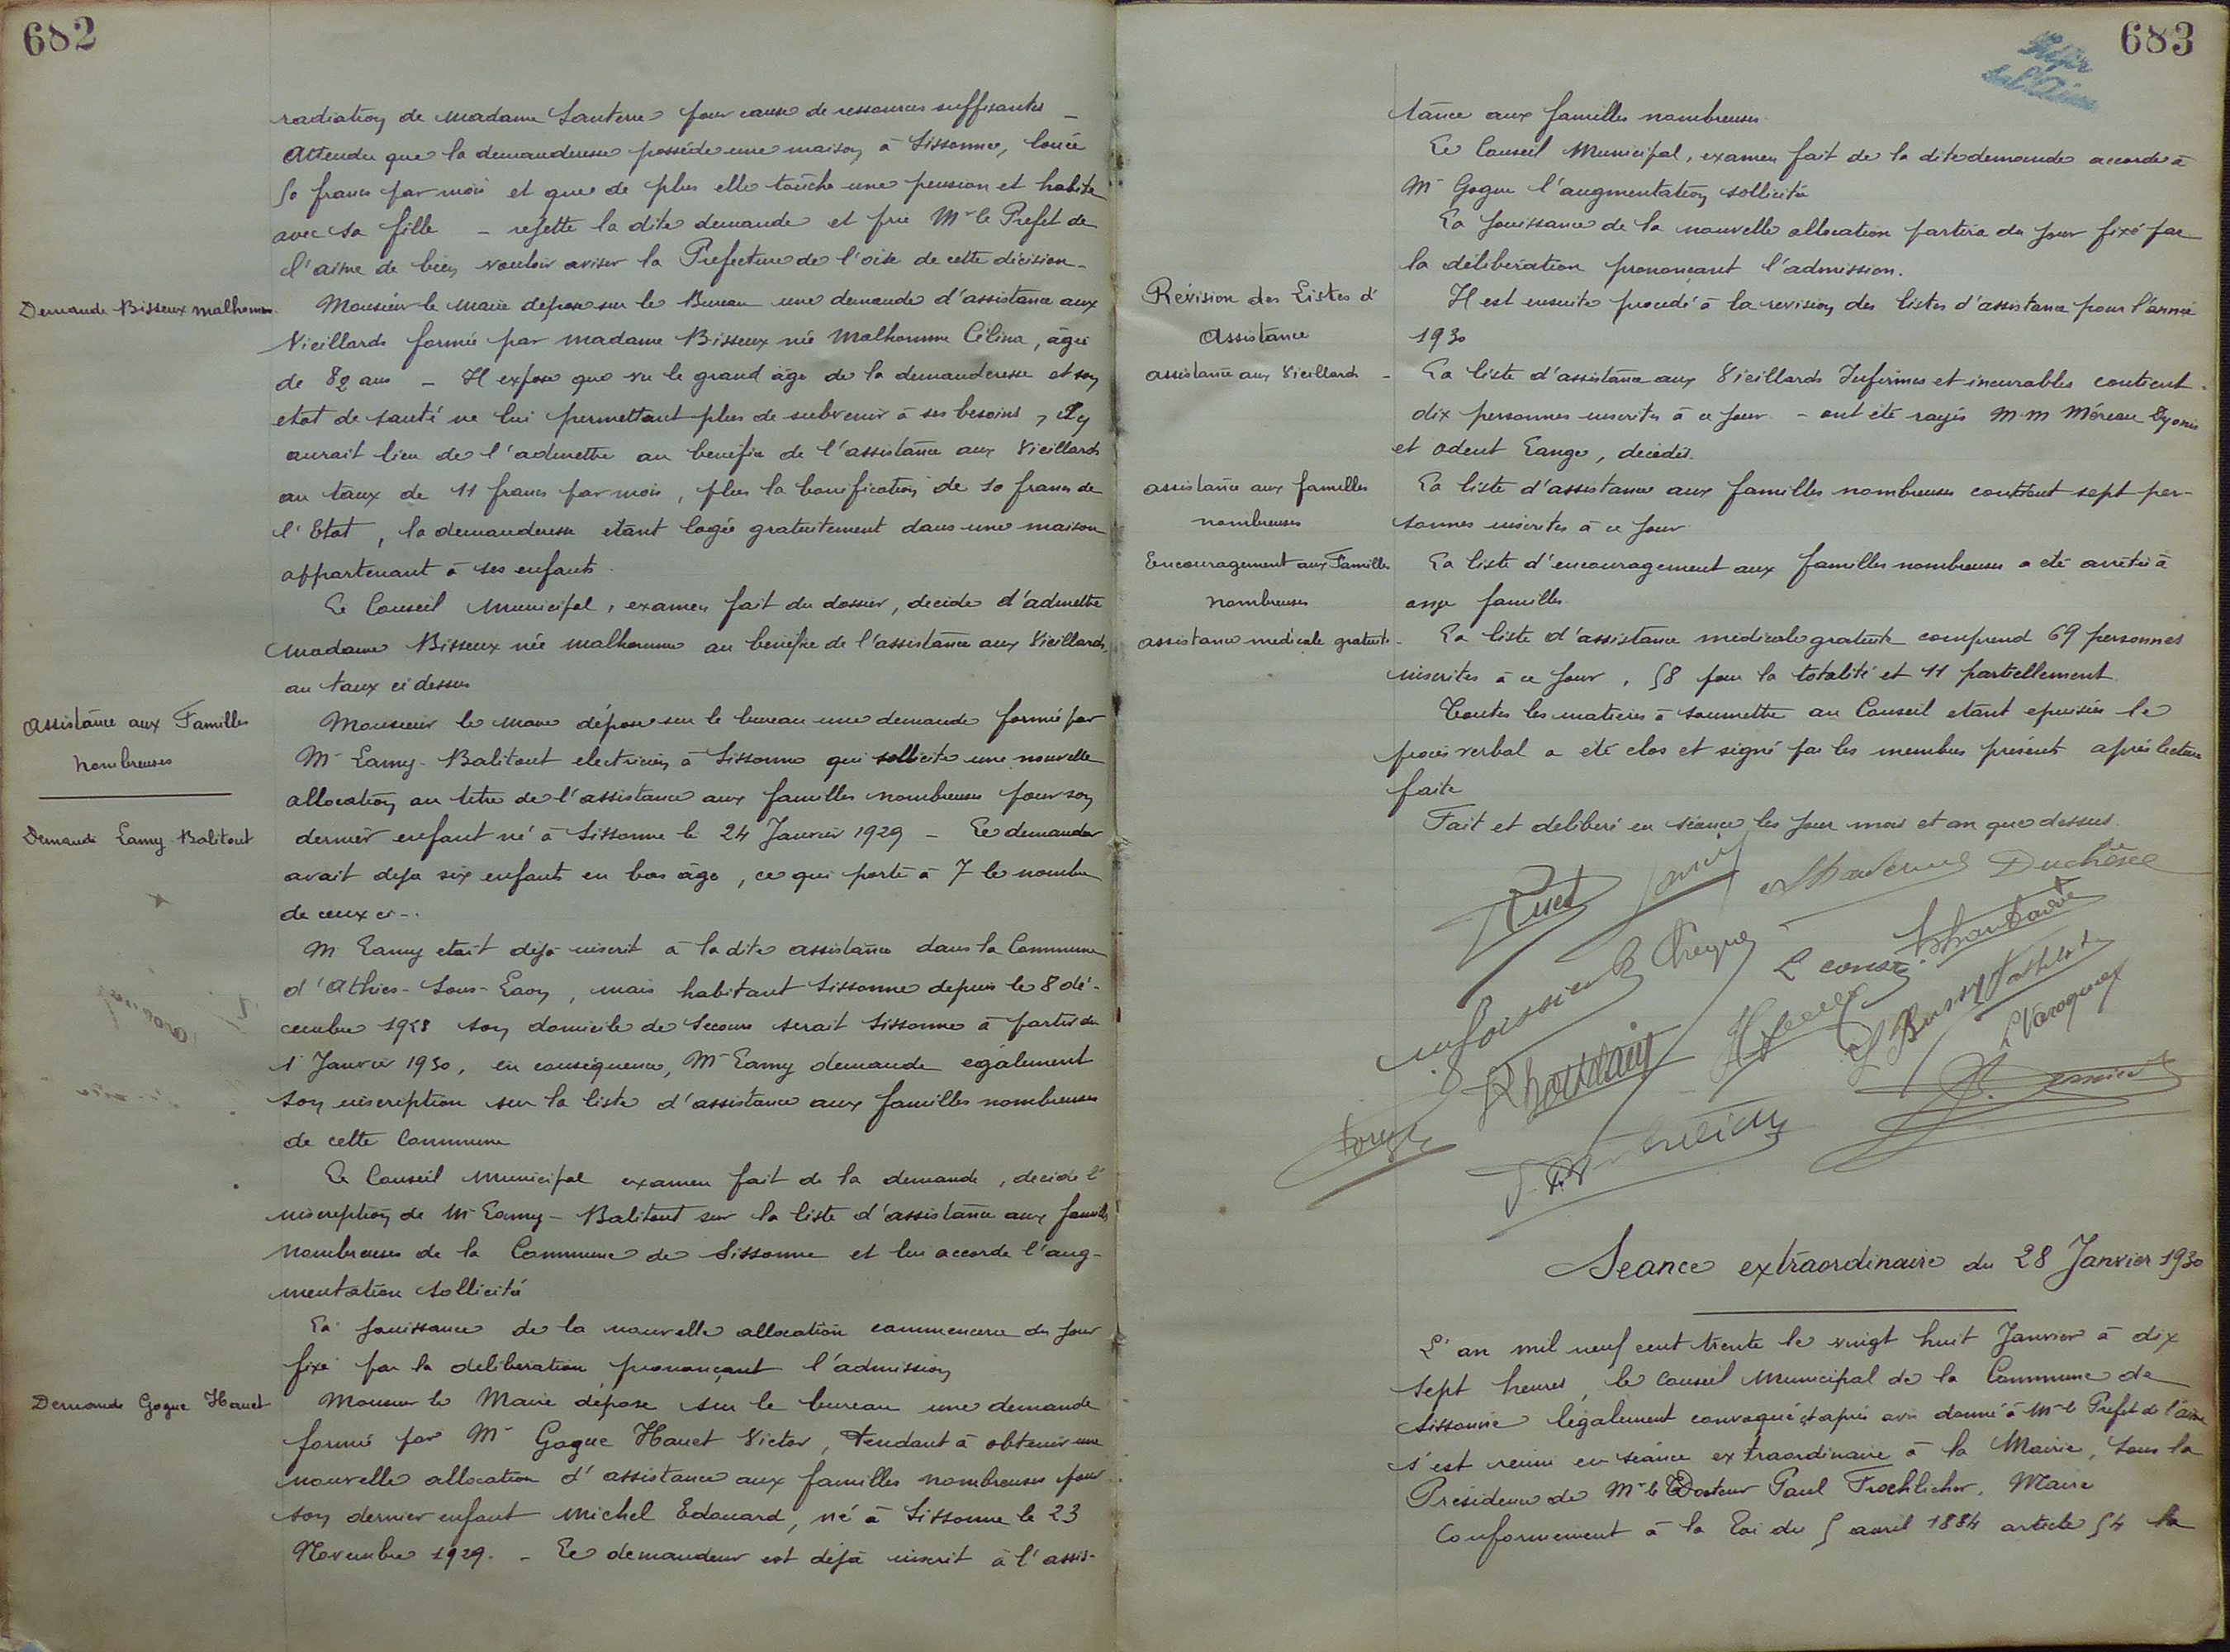 682
radiation de Madame Santerre pour cause de ressources suffisantes _
Attendu que la demanderesse possède une maison à Sissonne, louée
50 francs par mois et que de plus elle touche une pension et habite
avec sa fille _ rejette la dite demande et prie Mr le Prefet de
l'aisne de bien vouloir aviser la Prefecture de l'oise de cette décision _
Demande Bisseux malhomme
Monsieur le Maire dépose sur le Bureau une demande d'assistance aux
Vieillards formée par Madame Bisseux née Malhomme Célina, âgée
de 82 ans _ Il expose que vu le grand âge de la demanderesse et son
etat de santé ne lui permettant plus de subvenir à ses besoins, il y
aurait lieu de l'admettre au benefice de l'assistance aux Vieillards
au taux de 11 francs par mois, plus la bonification de 10 francs de
l'Etat, la demanderesse etant logée gratuitement dans une maison
appartenant à ses enfants.
Le Conseil Municipal, examen fait du dossier, decide d'admettre
Madame Bisseux née malhomme au benefice de l'assistance aux Vieillards,
au taux ci dessus
Assistance aux Familles
nombreuses
Monsieur le Maire dépose sur le bureau une demande formée par
Mr Lamy-Balitout electricien à Sissonne qui sollicite une nouvelle
allocation au titre de l'assistance aux familles nombreuses pour son
Demande Lamy Balitout
dernier enfant né à Sissonne le 24 Janvier 1929 _ Le demandeur
avait deja six enfants en bas âge, ce qui porte à 7 le nombre
de ceux ci _.
M Lamy etait déjà inscrit à la dite assistance dans la Commune
d'Athies-Sous-Laon, mais habitant Sissonne depuis le 8 dé-
cembre 1928 son domicile de Secours serait Sissonne à partir du
1 Janvier 1930, en conséquence, Mr Lamy demande également
son inscription sur la liste d'assistance aux familles nombreuses
de cette Commune
Le Conseil Municipal examen fait de la demande, decide l'
inscription de Mr Lamy-Balitout sur la liste d'assistance aux familles
nombreuses de la Commune de Sissonne et lui accorde l'aug-
mentation sollicité
La jouissance de la nouvelle allocation commencera du jour
fixé par la deliberation prononçant l'admission
Demande Gogue Hanet
Monsieur le Maire dépose sur le bureau une demande
formée par Mr Gogue Hanet Victor, tendant à obtenir une
nouvelle allocation d'assistance aux familles nombreuses pour
son dernier enfant Michel Edouard, né à Sissonne le 23
Novembre 1929. _ Le demandeur est déjà inscrit à l'assis-
683
tance aux familles nombreuses.
Le Conseil Municipal, examen fait de la dite demande accorde à
Mr Gogue l'augmentation sollicitée
La jouissance de la nouvelle allocation partira du jour fixé par
la déliberation prononçant l'admission.
Révision des Listes d'
Assistance
Il est ensuite procédé à la revision des listes d'assistance pour l'année
1930
assistance aux Vieillards
La liste d'assistance aux Vieillards Infirmes et incurables contient
dix personnes inscrites à ce jour _ ont été rayés M.M Méreau
et odent Lange, décédés.
assistance aux familles
nombreuses
La liste d'assistance aux familles nombreuses contient sept per-
sonnes inscrites à ce jour
Encouragement aux Familles
nombreuses
La liste d'encouragement aux familles nombreuses a été arrêtée à
onze familles
assistance medicale gratuite
La liste d'assistance médicale gratuite comprend 69 personnes
inscrites à ce jour, 58 pour la totalité et 11 partiellement
Toutes les matieres à soumettre au Conseil etant epuisées le
procès verbal a été clos et signé par les membres présents après lecture
faite
Fait et deliberé en séance les jour mois et an que dessus.
Duchêne
L Varoquet
Seance extraordinaire du 28 Janvier 1930
L'an mil neuf cent trente le vingt huit Janvier à dix
sept heures, le Conseil Municipal de la Commune de
Sissonne légalement convoqué et après avis donné à Mr le Prefet de l'aisne
s'est reuni en séance extraordinaire à la Mairie, sous la
Présidence de Mr le Docteur Paul Froehlicher, Maire
Conformement à la Loi du 5 avril 1884 article 54 la